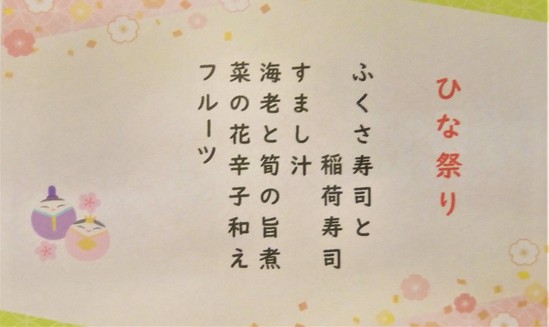 ひな祭り
ふくさ寿司と
稲荷寿司
すまし汁
海老と筍の旨煮
菜の花辛子和え
フルーツ